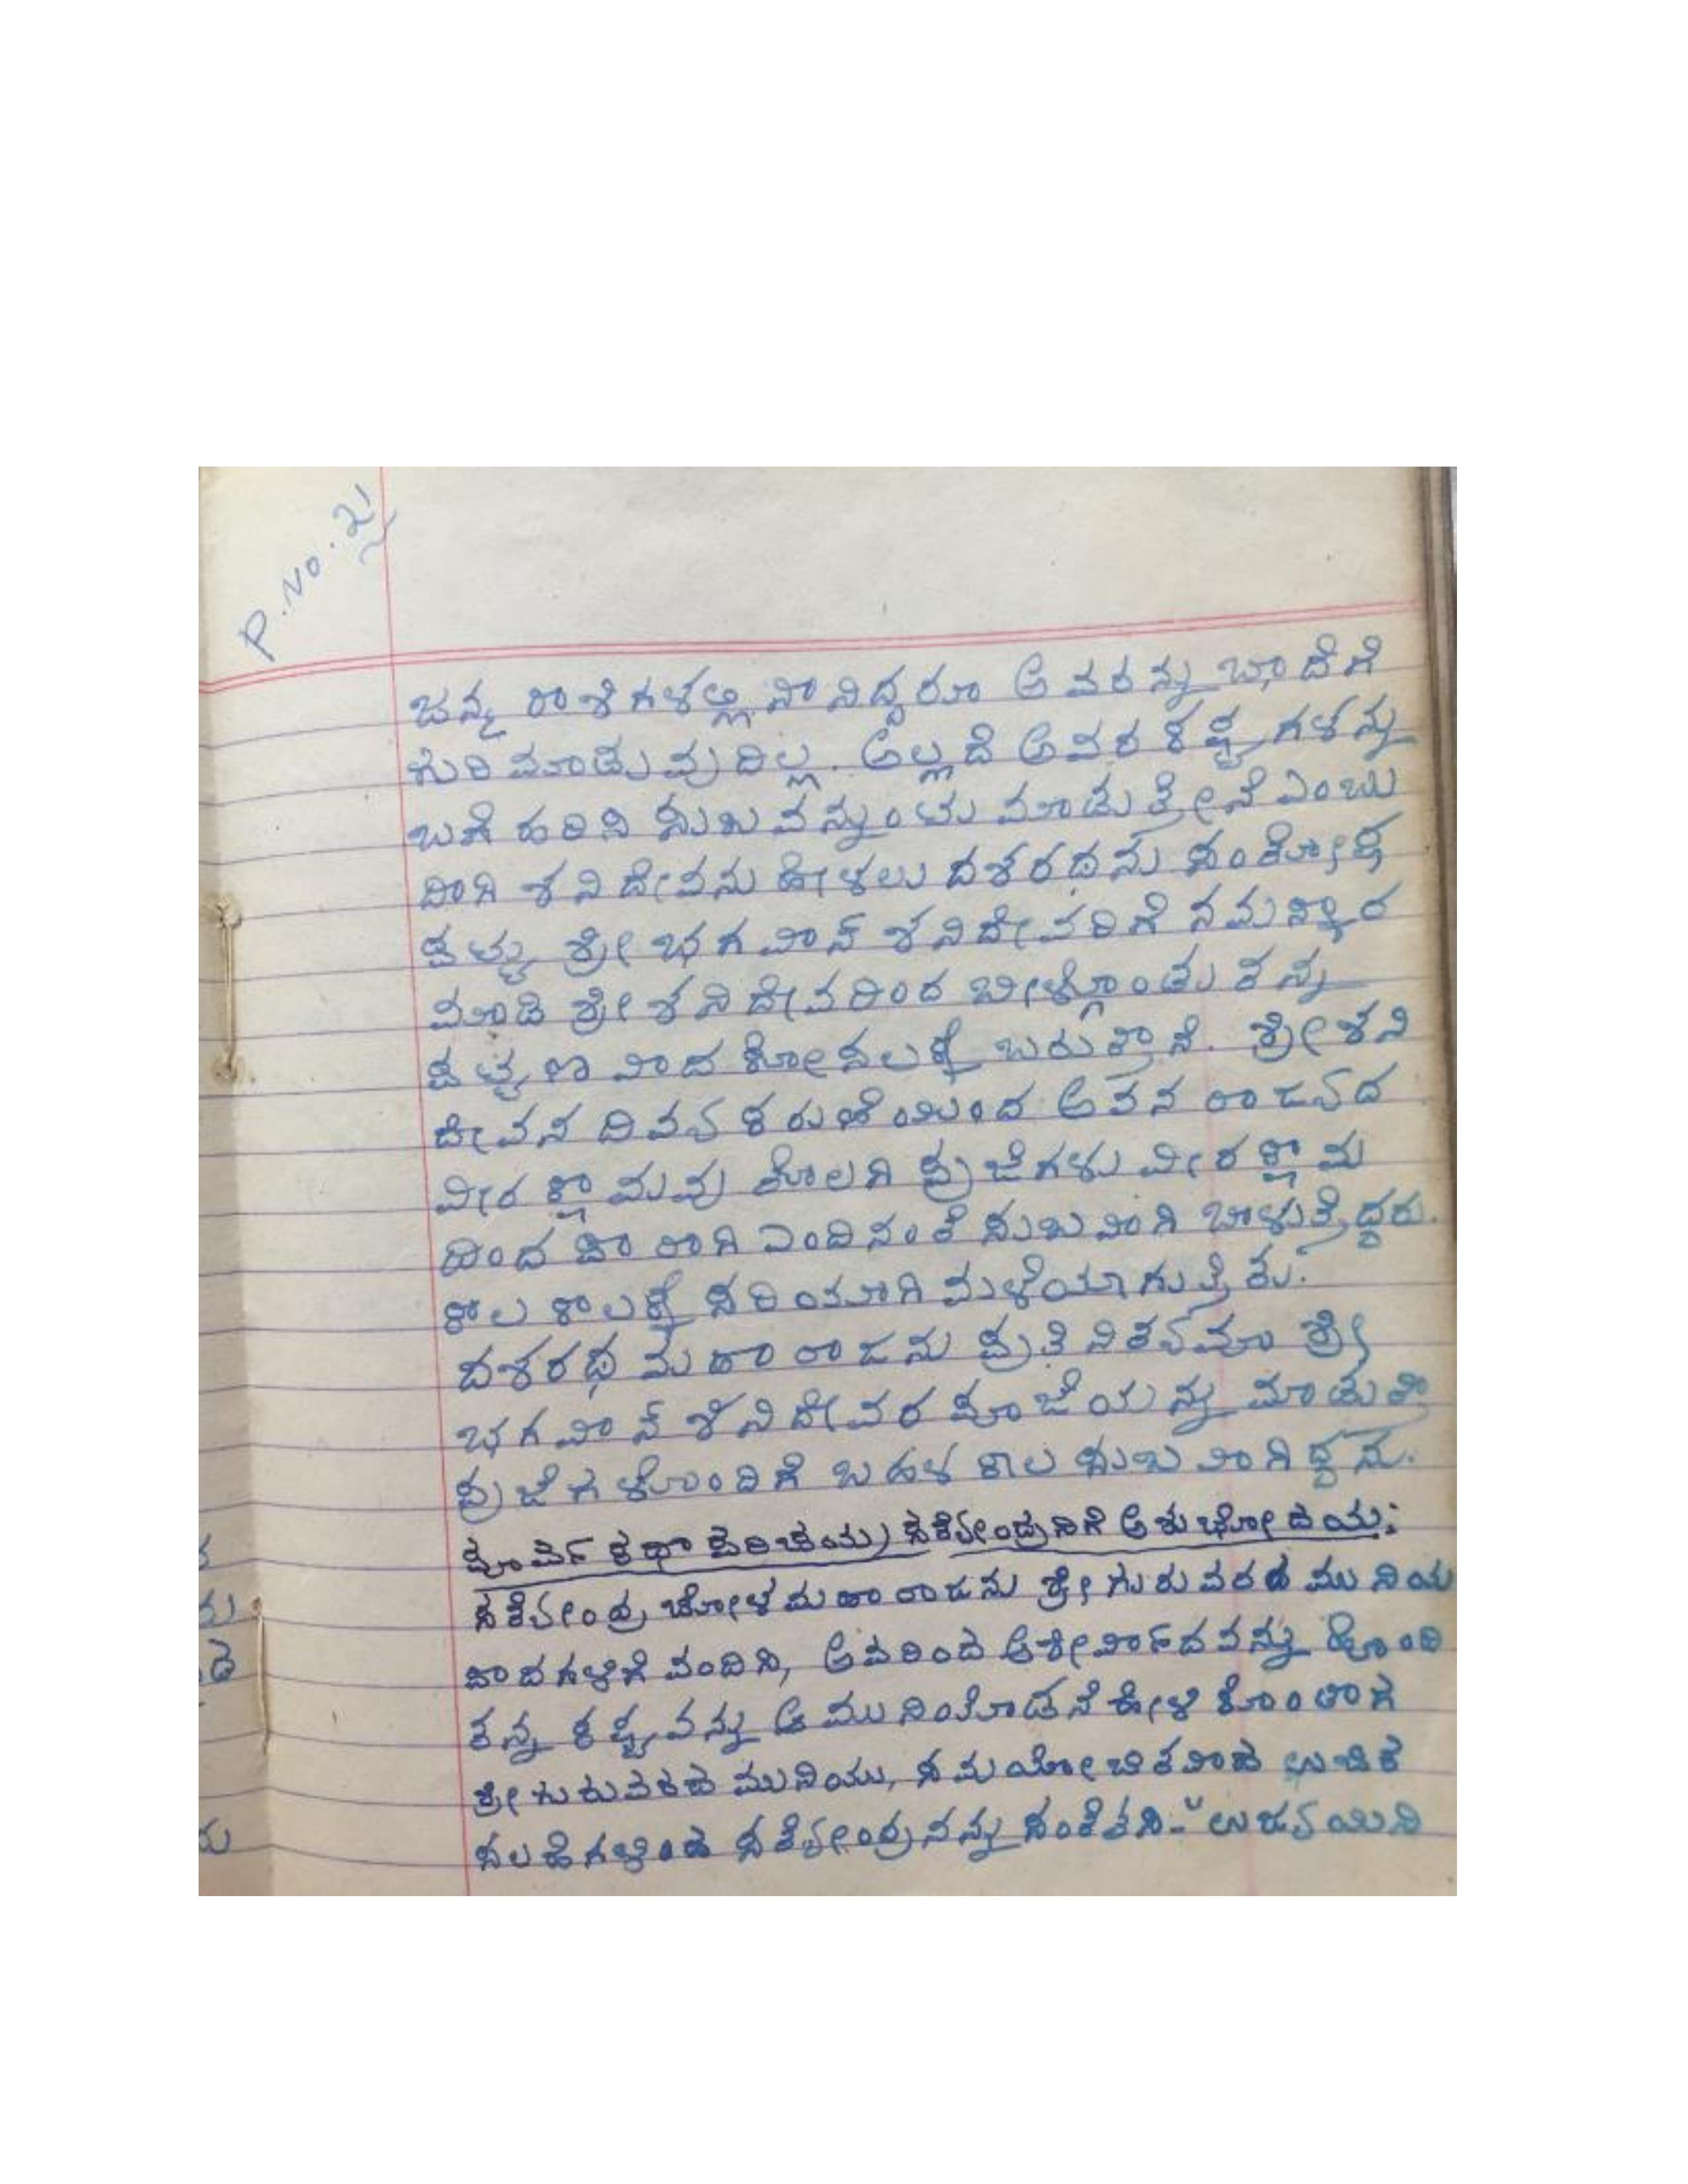 P.No. 2
ಜನ್ಮ ರಾಶಿಗಳಲ್ಲಿ ನಾನಿದ್ದರೂ ಅವರನ್ನು ಬಾಧೆಗೆ
ಗುರಿ ಮಾಡುವುದಿಲ್ಲ. ಅಲ್ಲದೆ ಅವರ ಕಷ್ಟಗಳನ್ನು
ಬಗೆ ಹರಿಸಿ ಸುಖವನ್ನುಂಟು ಮಾಡುತ್ತೇನೆ ಎಂಬು
ದಾಗಿ ಶನಿದೇವನು ಹೇಳಲು ದಶರಥನು ಸಂತೋಷ
ಪಟ್ಟು ಶ್ರೀ ಭಗವಾನ್ ಶನಿದೇವರಿಗೆ ನಮಸ್ಕಾರ
ಮಾಡಿ ಶ್ರೀ ಶನಿದೇವರಿಂದ ಬೀಳ್ಗೊಂಡು ತನ್ನ
ಪಟ್ಟಣವಾದ ಕೋಸಲಕ್ಕೆ ಬರುತ್ತಾನೆ. ಶ್ರೀ ಶನಿ
ದೇವನ ದಿವ್ಯ ಕರುಣೆಯಿಂದ ಅವನ ರಾಜ್ಯದ
ಭೀರ ಕ್ಷಾಮವು ತೊಲಗಿ ಪ್ರಜೆಗಳು ಭೀರ ಕ್ಷಾಮ
ದಿಂದ ಪಾರಾಗಿ ಎಂದಿನಂತೆ ಸುಖವಾಗಿ ಬಾಳುತ್ತಿದ್ದರು.
ಕಾಲ ಕಾಲಕ್ಕೆ ಸರಿಯಾಗಿ ಮಳೆಯಾಗುತ್ತಿತ್ತು.
ದಶರಥ ಮಹಾರಾಜನು ಪ್ರತಿ ನಿತ್ಯವೂ ಶ್ರೀ
ಭಗವಾನ್ ಶನಿದೇವರ ಪೂಜೆಯನ್ನು ಮಾಡುತ್ತಾ
ಪ್ರಜೆಗಳೊಂದಿಗೆ ಬಹಳ ಕಾಲ ಸುಖವಾಗಿದ್ದನು.
ಪೂರ್ವ ಕಥಾ ಪರಿಚಯ) ಸತ್ಯೇಂದ್ರನಿಗೆ ಅಶುಭೋದಯ:
ಸತ್ಯೇಂದ್ರ ಚೋಳ ಮಹಾರಾಜನು ಶ್ರೀ ಗುರುವರದ ಮುನಿಯ
ಪಾದಗಳಿಗೆ ವಂದಿಸಿ, ಅವರಿಂದ ಆಶೀರ್ವಾದವನ್ನು ಹೊಂದಿ
ತನ್ನ ಕಷ್ಟವನ್ನು ಆ ಮುನಿಯೊಡನೆ ಹೇಳಿ ಕೊಂಡಾಗ
ಶ್ರೀ ಗುರುವರದ ಮುನಿಯು, ಸಮಯೋಚಿತವಾದ ಉಚಿತ
ಸಲಹೆಗಳಿಂದ ಸತ್ಯೇಂದ್ರನನ್ನು ಸಂತೈಸಿ- "ಉಜ್ಜಯಿನಿ